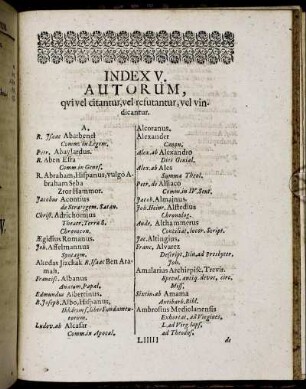 INDEX V.
AUTORUM,
qvi vel citantur, vel refutantur, vel vin-
dicantur.
A.
R. Isaac Abarbenel
Comm. in Legem,
Petr. Abaylardus.
R. Aben Esra
Comm in Genes.
R. Abraham, Hispanus, vulgò A-
braham Seba
Zror Hammor.
Jacobus Acontius
de Stratagem. Satan.
Christ. Adrichomius
Theatr. Terræ S.
Chronicon.
Ægidius Romanus.
Joh. Affelmannus
Syntagm.
Akedas Jizchak R. Isaac Ben Ara-
mah.
Francisc. Albanus
Anatom. Papal.
Edmundus Albertinus.
R. Joseph. Albo, Hispanus,
Ikkarim, liber Fundamen-
torum.
Ludov. ab Alcasar
Comm. in Apocal.
Alcoranus.
Alexander
Canon.
Alex. ab Alexandro
Dies Genial.
Alex. ab Ales
Summa Theol.
Petr. de Alliaco
Comm. in IV. Sent.
Jacob. Almainus
Joh. Heinr. Alstedius
Chronolog.
Andr. Althammerus
Conciliat. locor. Script.
Jac. Altingius.
Franc. Alvarez
Descript. Itin. ad Presbyter.
Joh.
Amalarius Archiepisc. Trevir.
Missæ,
Sixtin. ab Amama
Antibarb. Bibl.
Ambrosius Mediolanensis
Exhortat. ad Virgines,
L. ad Virg. lapf.
ad Theodos.
Lllll
de